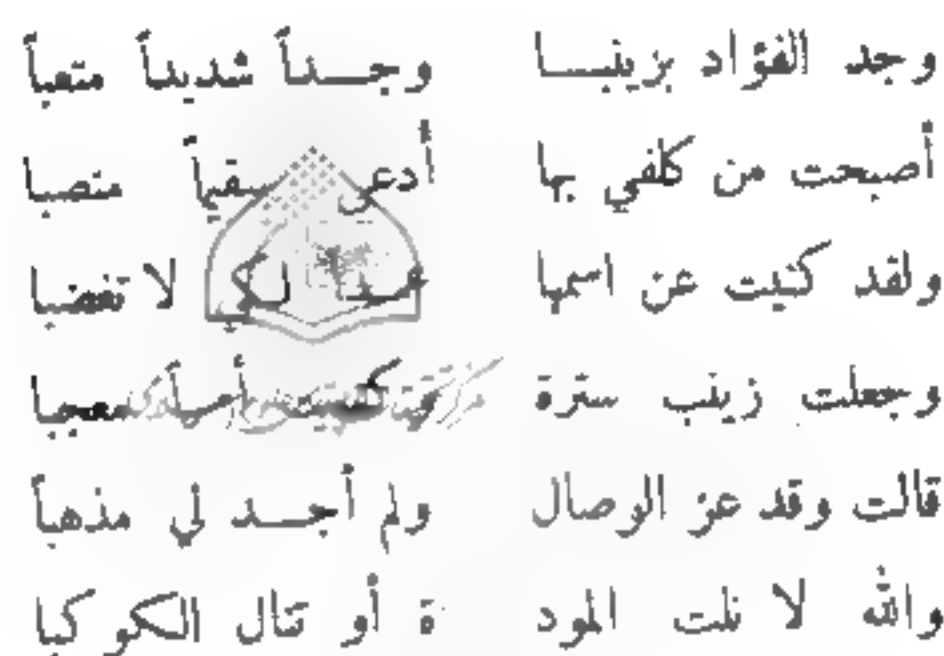 وجد الفؤاد بزينبـــا وجـــداً شديداً متعباً
أصبحت من كلفي بها أدعى سقيماً منصبا
ولقد كنيت عن اسمها عمداً لكي لا تغضبا
وجعلت زينب سترة وكتمت أمراً معجبا
قالت وقد عز الوصال ولم أجـــد لي مذهباً
والله لا نلت المود ة أو تنال الكوكبا